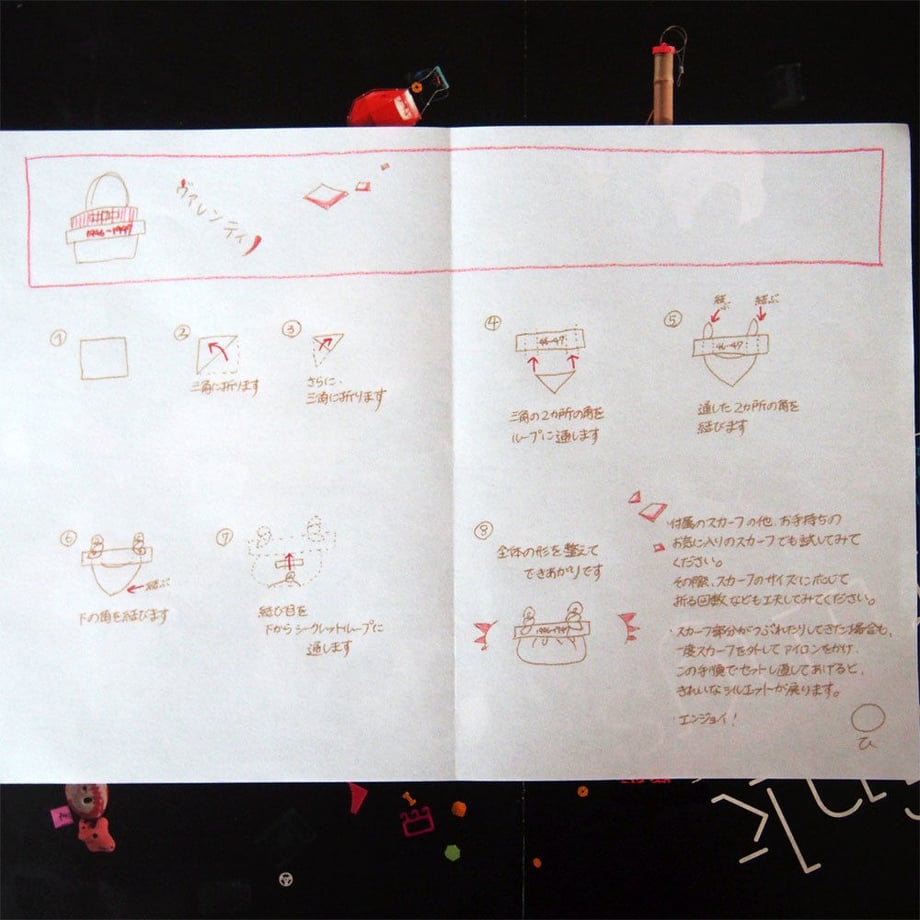 1946-1947
ヴァレンティ
①
②
三角に折ります
③
さらに、
三角に折ります
④
46-47
三角の2カ所の角を
ループに通します
⑤
結ぶ
結ぶ
46-47
通した2カ所の角を
結びます
⑥
結ぶ
下の角を結びます
⑦
結び目を
下からシークレットループに
通します
⑧
全体の形を整えて
できあがりです
1946-1947
・付属のスカーフの他、お手持ちの
お気に入りのスカーフでも試してみて
ください。
その際、スカーフのサイズに応じて
折る回数なども工夫してみてください。
・スカーフ部分がつぶれたりしてきた場合も、
一度スカーフを外してアイロンをかけ、
この手順でセットし直してあげると、
きれいなシルエットが戻ります。
・エンジョイ!
ひ